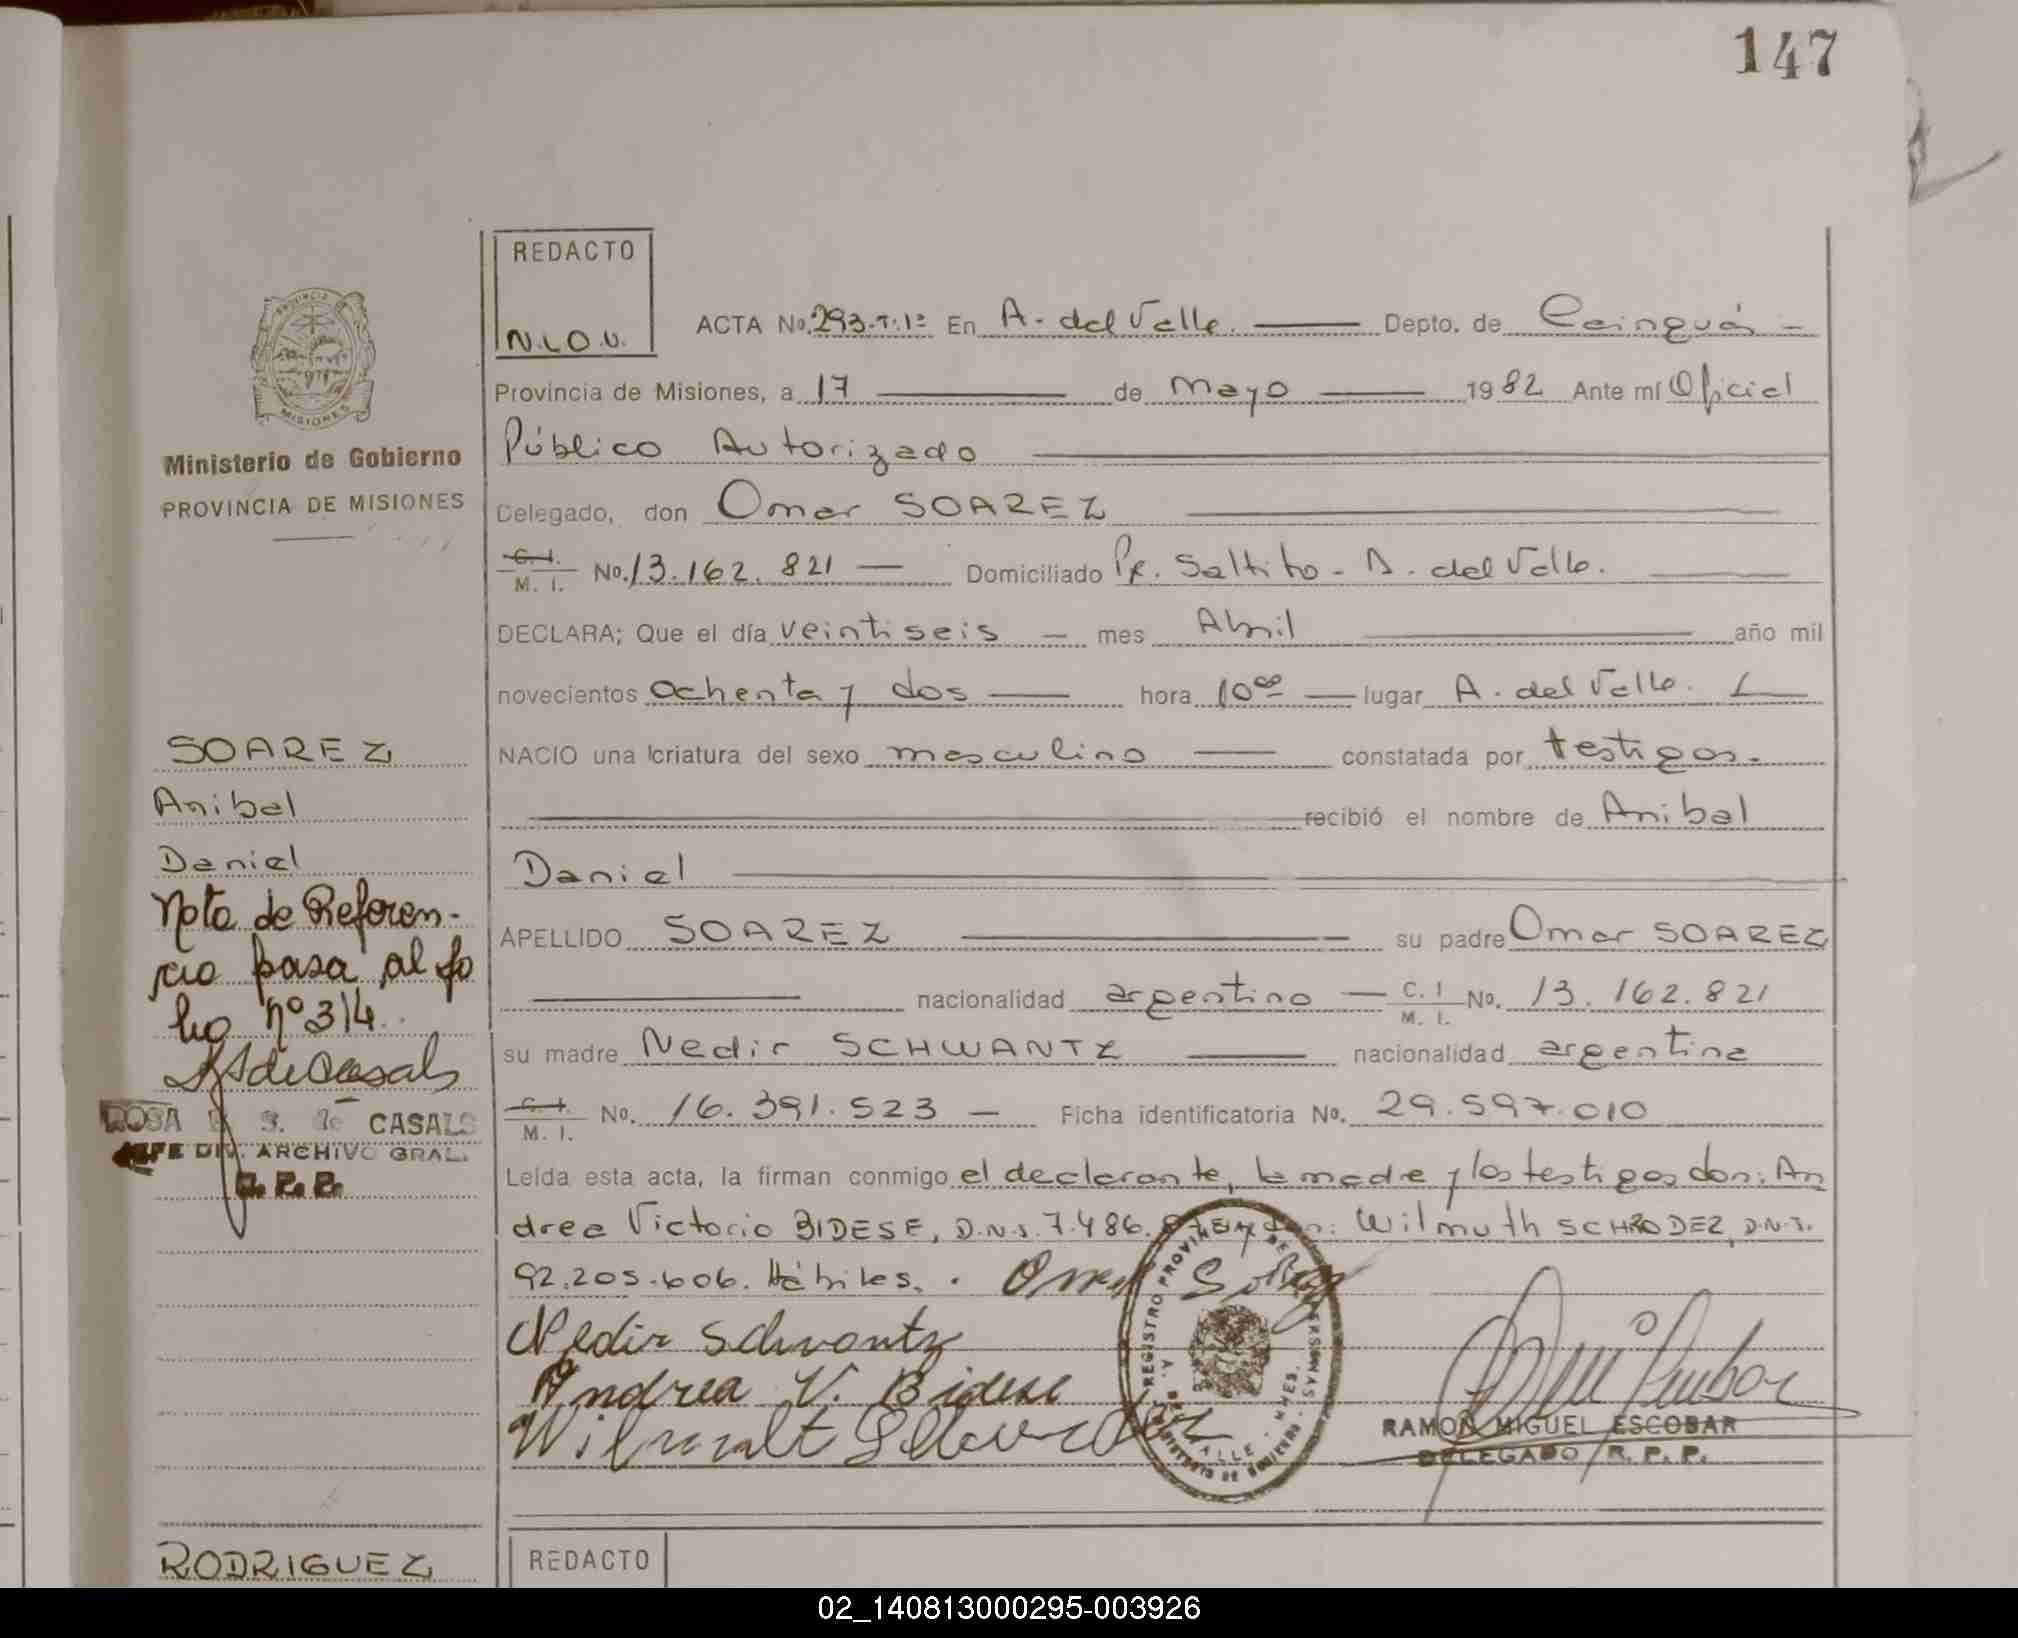 147
REDACTO
N.L.O.U.
ACTA No. 293-T.1º En A. del Valle. Depto. de Cainguás
Provincia de Misiones, a 17 de mayo 1982 Ante mí Oficial
Público Autorizado
Delegado, don Omar SOAREZ
C. I. M. I. No. 13.162.821 Domiciliado Pr. Saltito - A. del Valle.
DECLARA; Que el día veintiseis mes Abril año mil
novecientos ochenta y dos hora 10 00 lugar A. del Valle.
NACIO una criatura del sexo masculino constatada por testigos.
recibió el nombre de Anibal
Daniel
APELLIDO SOAREZ su padre Omar SOAREZ
nacionalidad argentino C. I M. I. No. 13.162.821
su madre Nedir SCHWANTZ nacionalidad argentina
C. I. M. I. No. 16.391.523 Ficha identificatoria No. 29.597.010
Leída esta acta, la firman conmigo el declarante, la madre y los testigos don: An
drea Victorio BIDESE, D.N.I. 7.486. don: Wilmuth SCHRODEZ, D.N.I.
92.205.606. Hábiles. Omar Soarez
Nedir Schwantz
Andrea V. Bidese
REGISTRO PROVINCIAL DE LAS PERSONAS
A. DEL VALLE - MNES.
MINISTERIO DE GOBIERNO
RAMON MIGUEL ESCOBAR
DELEGADO R. P. P.
PROVINCIA
MISIONES
Ministerio de Gobierno
PROVINCIA DE MISIONES
SOAREZ
Anibal
Daniel
Nota de Referen-
cia pasa al fo
lio nº 314.
ROSA S. de CASALS
JEFE DIV. ARCHIVO GRAL.
R. P. P.
RODRIGUEZ
REDACTO
02_140813000295-003926